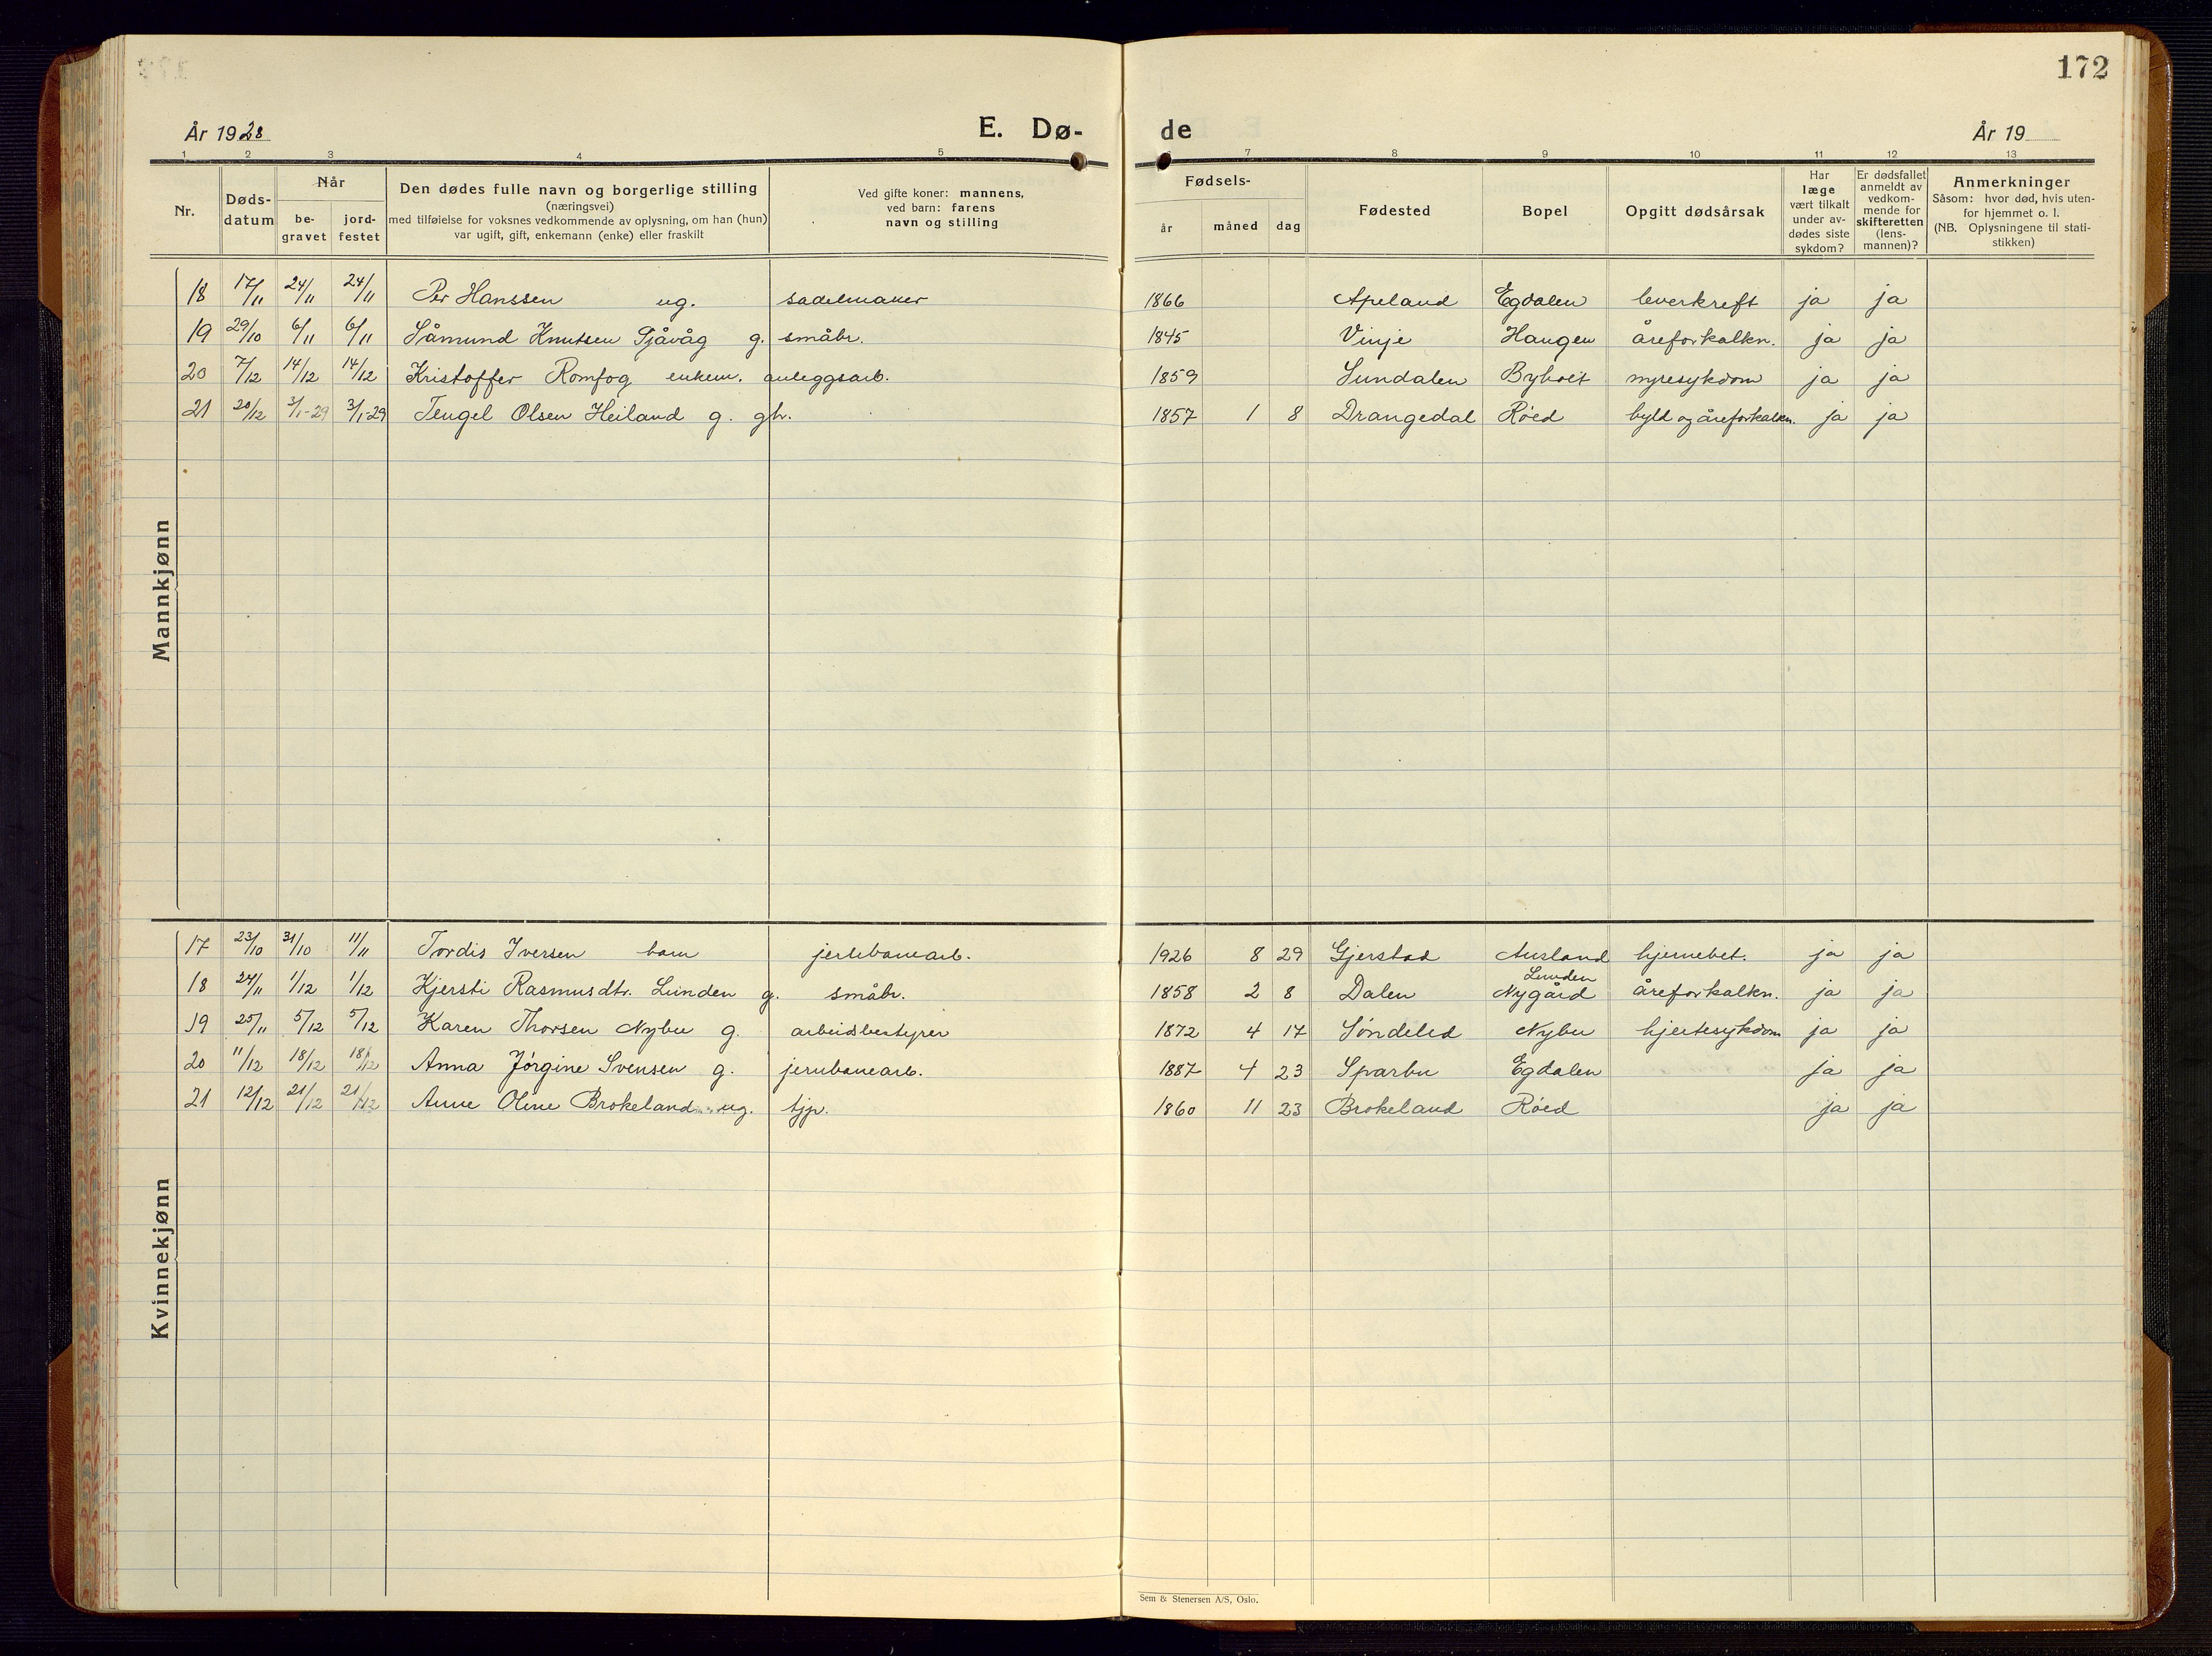 172
År 1928
E. Dø-
de
År 19
1 2 3 4 5 6 7 8 9 10 11 12 13
Nr.
Døds-
datum
Når
be-
gravet
jord-
festet
Den dødes fulle navn og borgerlige stilling
(næringsvei)
med tilføielse for voksnes vedkommende av oplysning, om han (hun)
var ugift, gift, enkemann (enke) eller fraskilt
Ved gifte koner: mannens,
ved barn: farens
navn og stilling
Fødsels-
år måned dag
Fødested
Bopel
Opgitt dødsårsak
Har
læge
vært tilkalt
under av-
dødes siste
sykdom?
Er dødsfallet
anmeldt av
vedkom-
mende for
skifteretten
(lens-
mannen)?
Anmerkninger
Såsom: hvor død, hvis uten-
for hjemmet o. l.
(NB. Oplysningene til stati-
stikken)
Mannkjønn
18 17/11 24/11 24/11 Per Hanssen ug. sadelmaker 1866 Apeland Egdalen leverkreft ja ja
19 29/10 6/11 6/11 Såmund Knutsen Tjåvåg g. småbr. 1845 Vinje Haugen åreforkalkn. ja ja
20 7/12 14/12 14/12 Kristoffer Romfog enkem. anleggsarb. 1859 Sundalen Byholt nyresykdom ja ja
21 20/12 3/1-29 3/1-29 Tengel Olsen Heiland g. gbr. 1857 1 8 Drangedal Røed byld og åreforkalkn. ja ja
Kvinnekjønn
17 23/10 31/10 11/11 Tordis Iversen barn jernbanearb. 1926 8 29 Gjerstad Ausland hjernebet. ja ja
Lunden
18 24/11 1/12 1/12 Kjersti Rasmusdtr. Lunden g. småbr. 1858 2 8 Dalen Nygård åreforkalkn. ja ja
19 25/11 5/12 5/12 Karen Thorsen Nybu g. arbeidsbestyrer 1872 4 17 Søndeled Nybu hjertesykdom ja ja
20 11/12 18/12 18/12 Anna Jørgine Svensen g. jernbanearb. 1887 4 23 Sparbu Egdalen ja ja
21 12/12 21/12 21/12 Anne Oline Brokeland ug. tjp. 1860 11 23 Brokeland Røed ja ja
Sem & Stenersen A/S, Oslo.